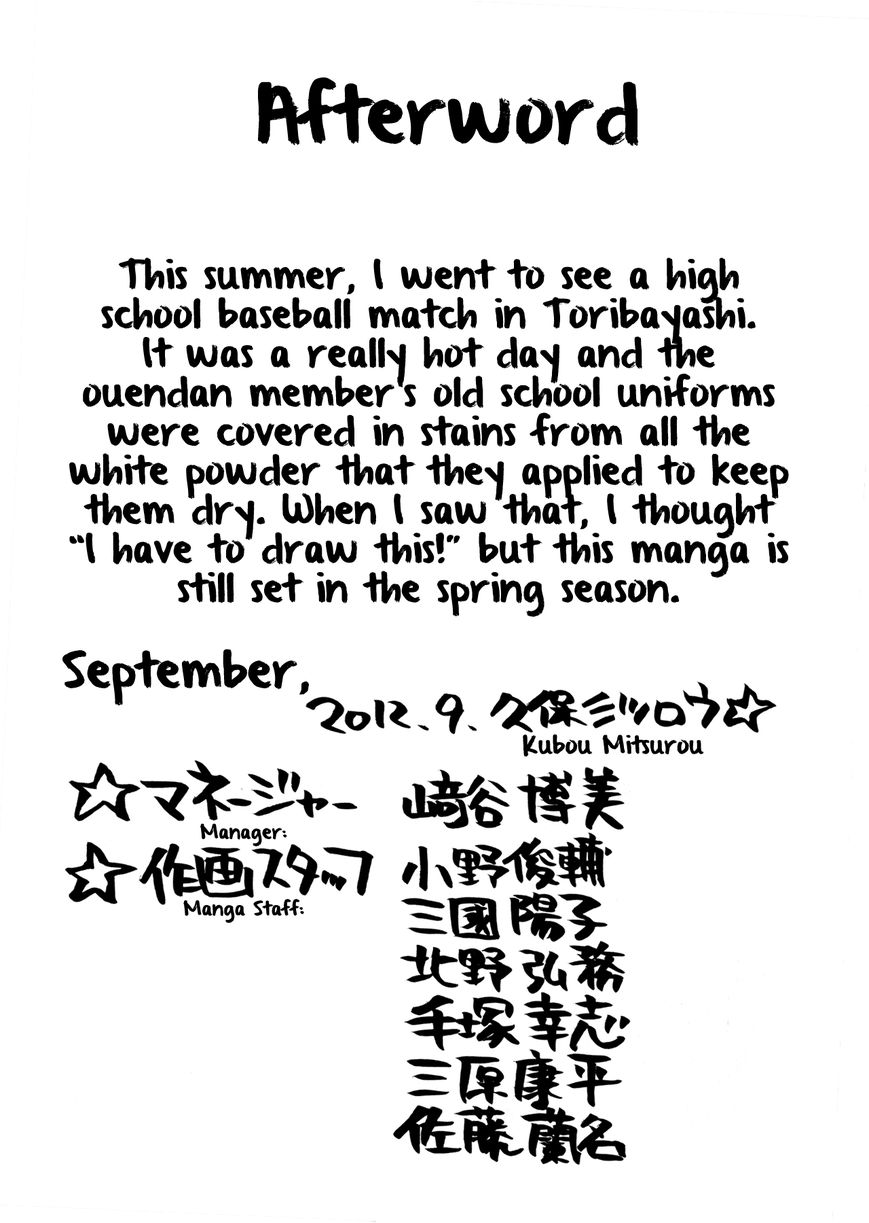 Afterword
This summer, I went to see a high
school baseball match in Toribayashi.
It was a really hot day and the
ouendan member's old school uniforms
were covered in stains from all the
white powder that they applied to keep
them dry. When I saw that, I thought
“I have to draw this!” but this manga is
still set in the spring season.
September,
2012.9. 久保ミツロウ☆
Kubou Mitsurou
☆マネージャー 﨑谷 博美
Manager:
☆作画スタッフ 小野俊輔
Manga Staff:
三國 陽子
北野 弘務
手塚 幸志
三原康平
佐藤 蘭名